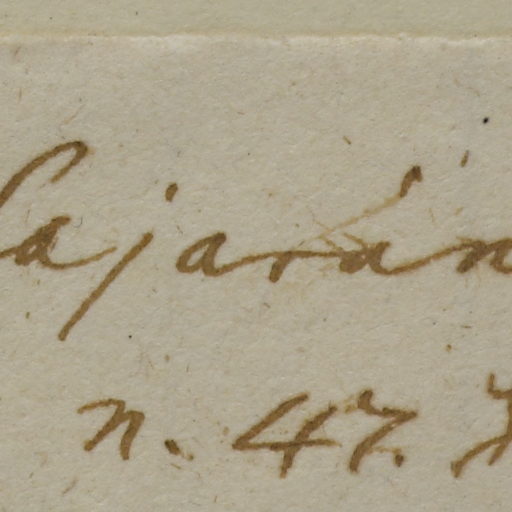 Cajarán
n. 47.